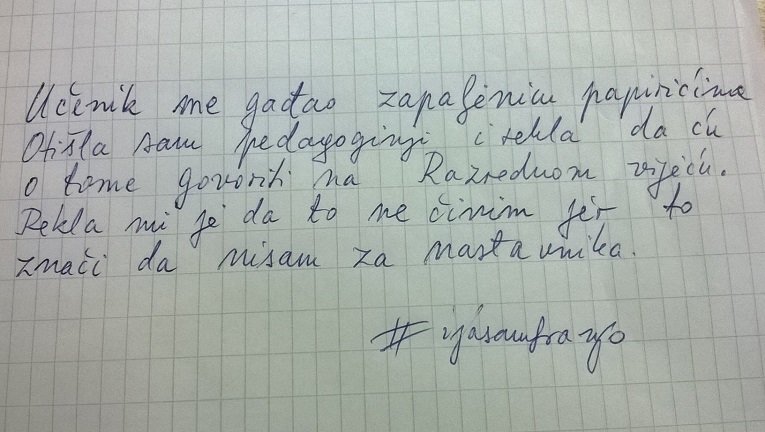 Učenik me gađao zapaljenim papirićima
Otišla sam pedagoginji i rekla da ću
o tome govoriti na Razrednom vijeću.
Rekla mi je da to ne činim jer to
znači da nisam za nastavnika.
# ijasamfranjo